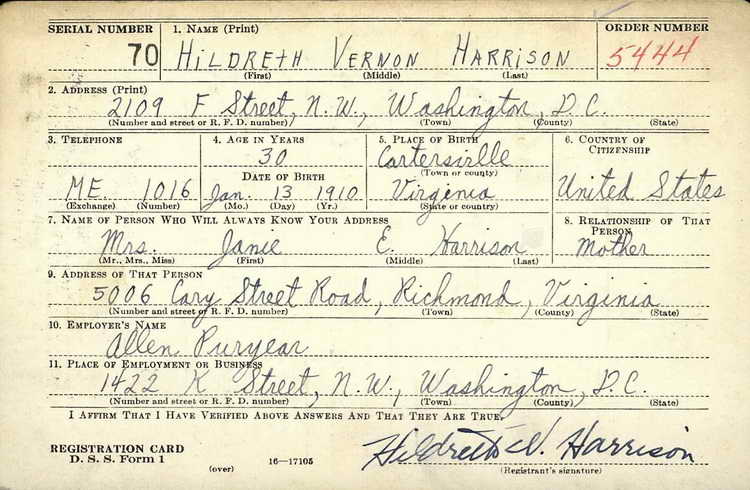 SERIAL NUMBER 1. NAME (Print) ORDER NUMBER
70 HILDRETH VERNON HARRISON 5444
(First) (Middle) (Last)
2. ADDRESS (Print)
2109 F Street, N.W., Washington, D.C.
(Number and street or R. F. D. number) (Town) (County) (State)
3. TELEPHONE 4. AGE IN YEARS 5. PLACE OF BIRTH 6. COUNTRY OF CITIZENSHIP
30 Cartersville
DATE OF BIRTH (Town or county)
ME. 1016 Jan. 13 1910 Virginia United States
(Exchange) (Number) (Mo.) (Day) (Yr.) (State or country)
7. NAME OF PERSON WHO WILL ALWAYS KNOW YOUR ADDRESS 8. RELATIONSHIP OF THAT PERSON
Mrs. Janie E. Harrison Mother
(Mr., Mrs., Miss) (First) (Middle) (Last)
9. ADDRESS OF THAT PERSON
5006 Cary Street Road, Richmond, Virginia
(Number and street or R. F. D. number) (Town) (County) (State)
10. EMPLOYER'S NAME
Allen Puryear
11. PLACE OF EMPLOYMENT OR BUSINESS
1422 K Street, N.W., Washington, D.C.
(Number and street or R. F. D. number) (Town) (County) (State)
I AFFIRM THAT I HAVE VERIFIED ABOVE ANSWERS AND THAT THEY ARE TRUE.
REGISTRATION CARD
D. S. S. Form 1 Hildreth V. Harrison
(over) 16—17105 (Registrant's signature)